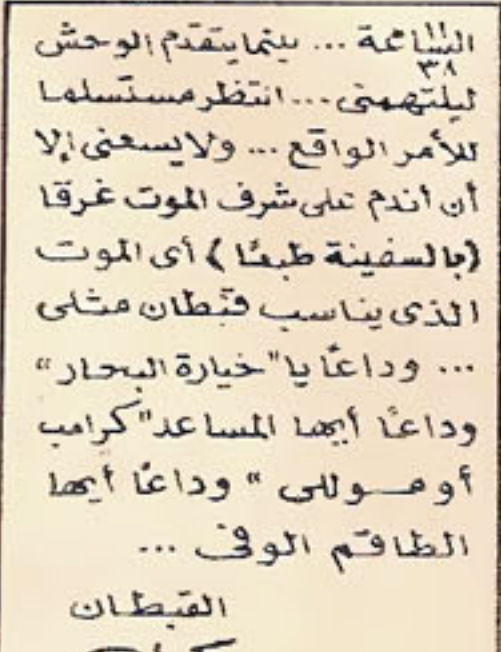 الساعة ... بينما يتقدم الوحش
٣٨
ليلتهمنى ... انتظر مستسلما
للأمر الواقع ... ولا يسعنى إلا
أن أندم على شرف الموت غرقا
(بالسفينة طبعًا) أى الموت
الذى يناسب قبطان مثلى
... وداعًا يا "خيارة البحار"
وداعًا أيها المساعد "كرامب
أو موللى" وداعًا أيها
الطاقم الوفى ...
القبطان